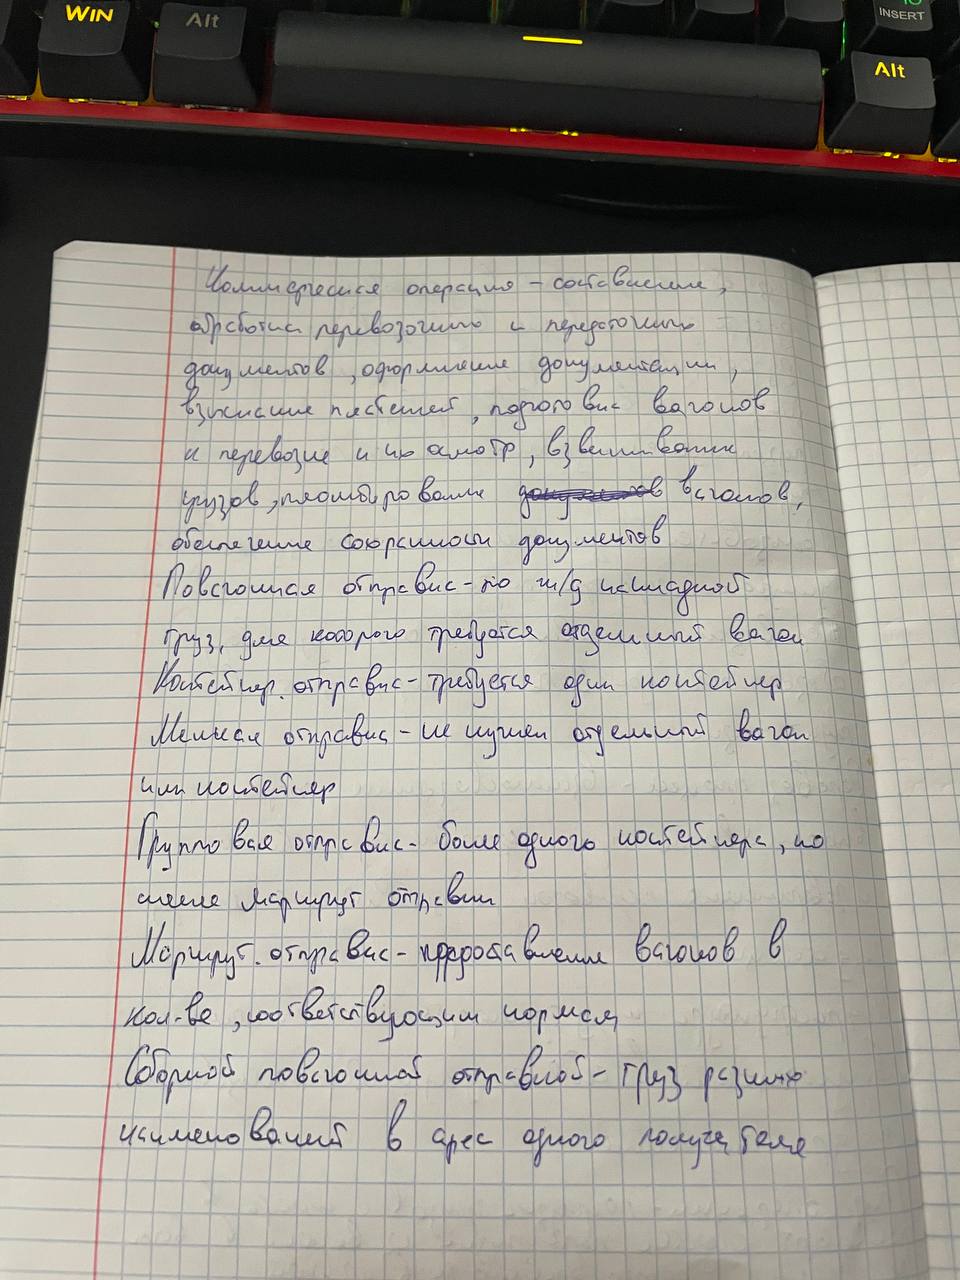 WIN
Alt
INSERT
Alt
Коммерческая операция – составление,
обработка перевозочных и передаточных
документов, оформление документации,
взыскание платежей, подготовка вагонов
к перевозке и их осмотр, взвешивание
грузов, пломбирование вагонов,
обеспечение сохранности документов
Повагонная отправка – по ж/д накладной
груз, для которого требуется отдельный вагон
Контейнер. отправка – требуется один контейнер
Мелкая отправка – не нужен отдельный вагон
или контейнер
Групповая отправка – более одного контейнера, но
менее маршрут отправки
Маршрут. отправка – предоставление вагонов в
кол-ве, соответствующим нормам
Сборной повагонной отправкой – груз разных
наименований в адрес одного получателя